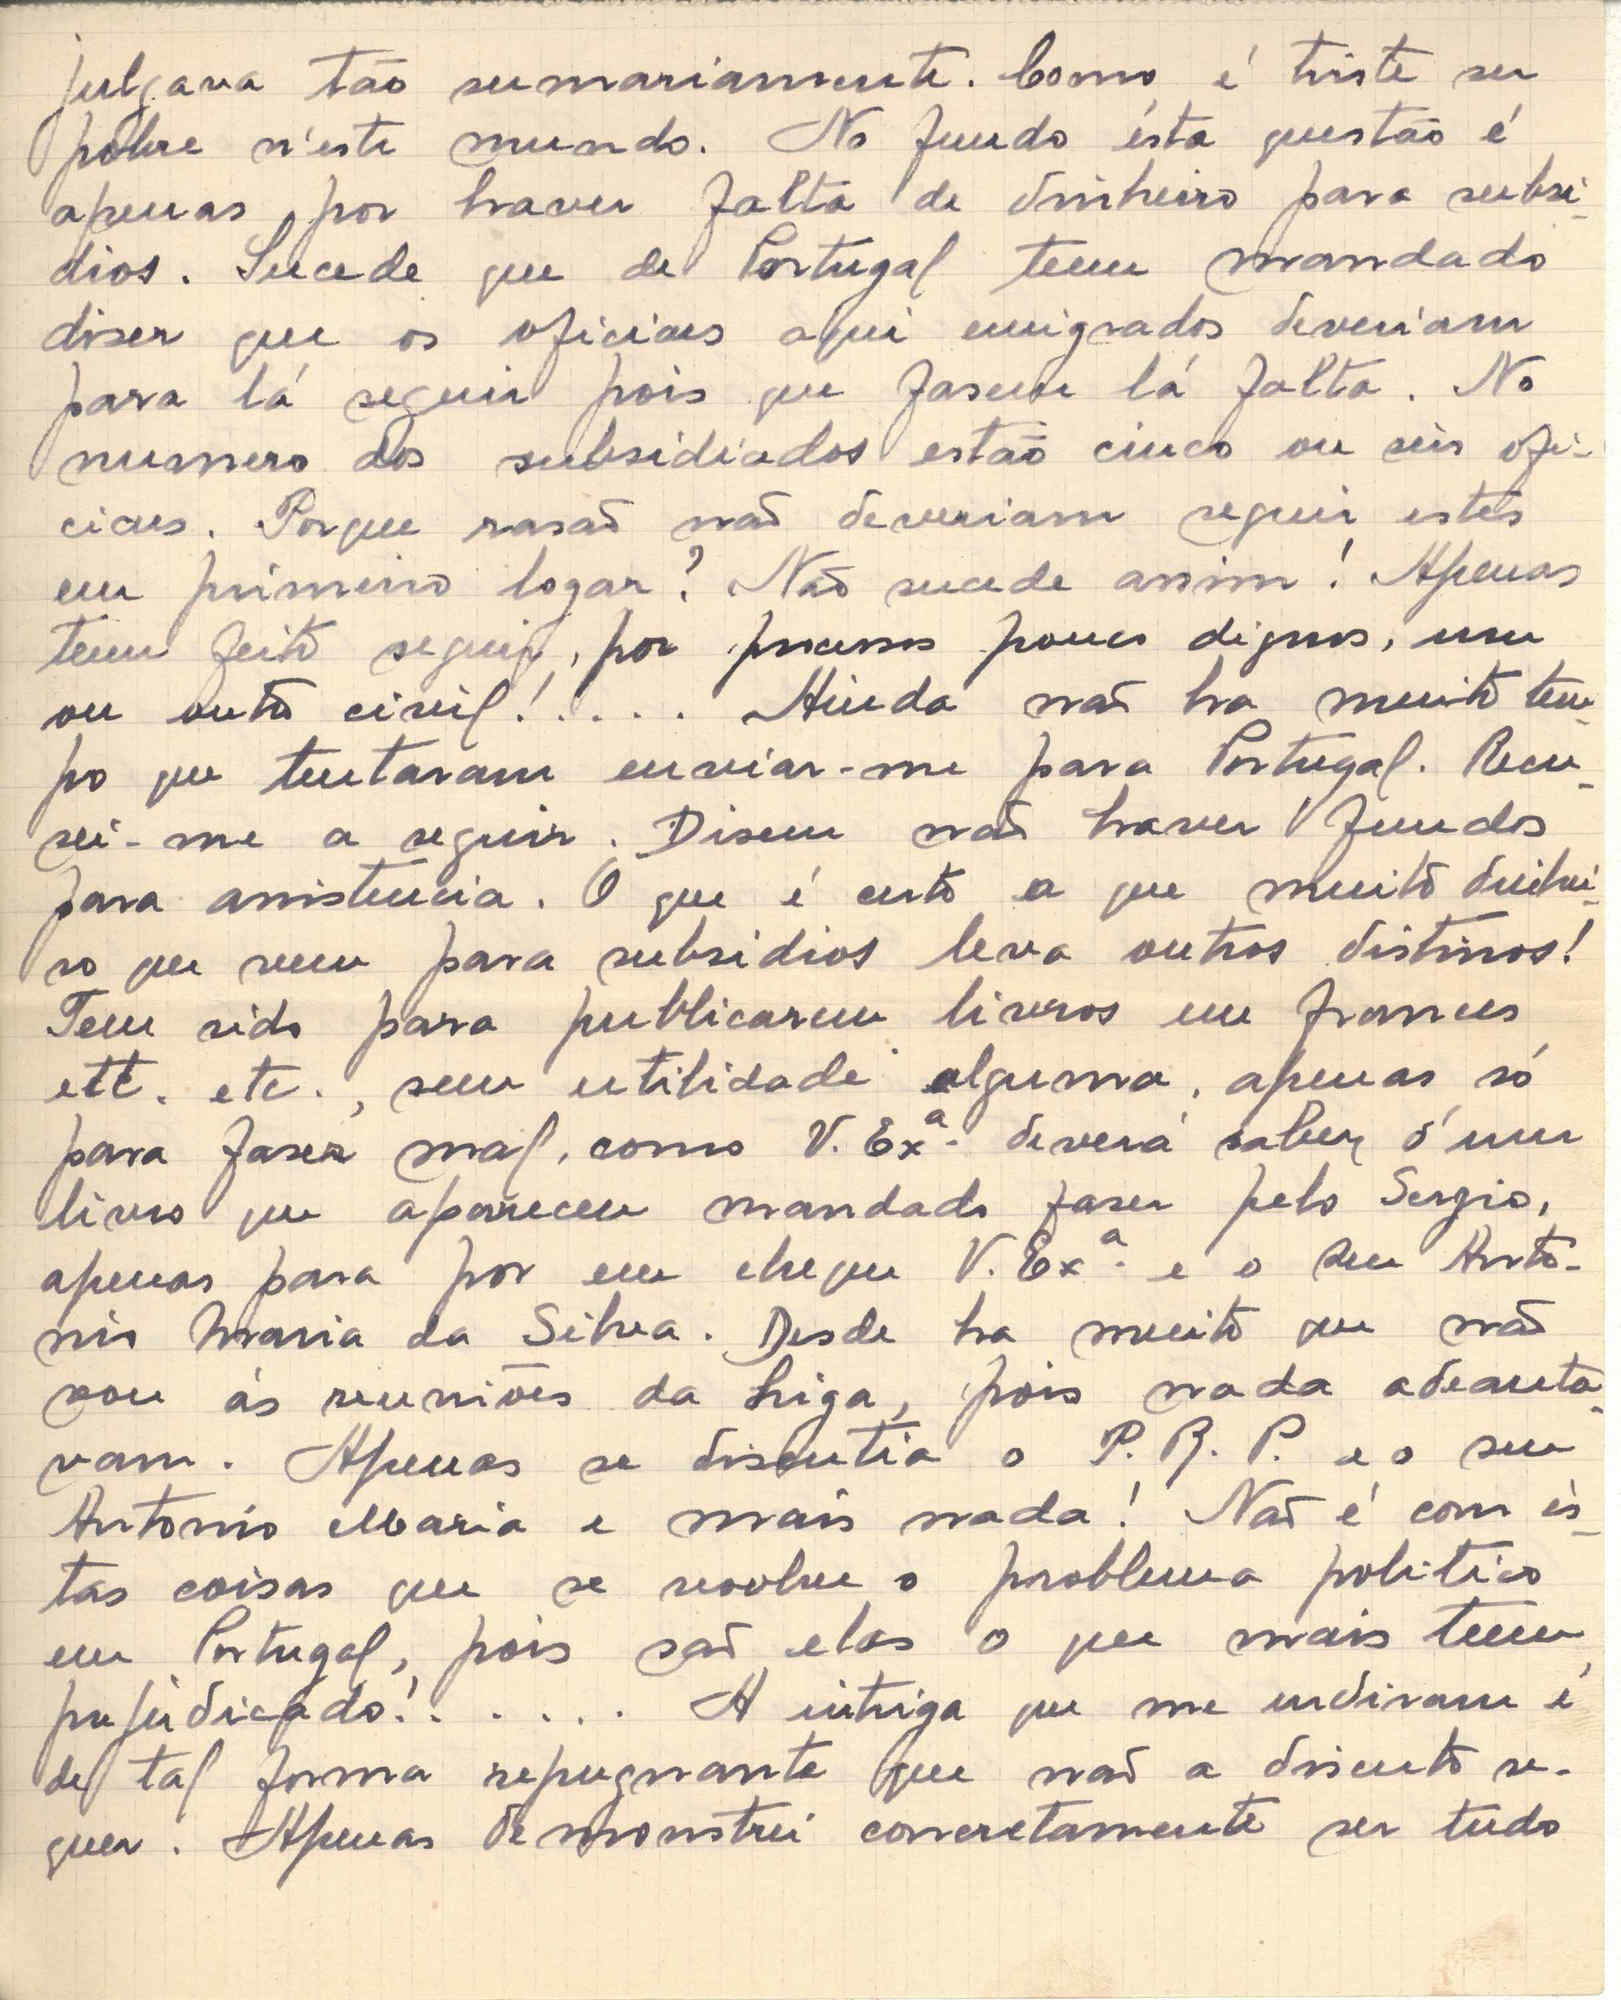 julgava tão sumariamente. Como é triste ser
pobre n'este mundo. No fundo ésta questão é
apenas por haver falta de dinheiro para subsi-
dios. Sucede que de Portugal teem mandado
diser que os oficiaes aqui emigrados deveriam
para lá seguir pois que fasem lá falta. No
numero dos subsidiados estão cinco ou seis ofi-
ciaes. Porque rasaõ naõ deveriam seguir estes
em primeiro logar? Naõ sucede assim! Apenas
teem feito seguir, por processos pouco dignos, um
ou outro civil!..... Ainda naõ ha muito tem-
po que tentaram enviar-me para Portugal. Recu-
sei-me a seguir. Disem naõ haver fundos
para assistencia. O que é certo e que muito dinhei-
ro que vem para subsidios leva outros distinos!
Tem sido para publicarem livros em frances
ett. etc., sem utilidade alguma, apenas só
para faser mal, como V. Exª. deverá saber, d'um
livro que apareceu mandado faser pelo Sergio,
apenas para por em cheque V. Exª. e o Snr Anto-
nio Maria da Silva. Desde ha muito que naõ
vou ás reuniões da Liga, pois nada adeanta-
vam. Apenas se discutia o P. R. P. e o seu
Antonio Maria e mais nada! Naõ é com és-
tas coisas que se resolve o problema politico
em Portugal, pois saõ elas o que mais teem
prejudicado!...... A intriga que me moveram é
de tal forma repugnante que naõ a discuto se-
quer. Apenas demonstrei concretamente ser tudo